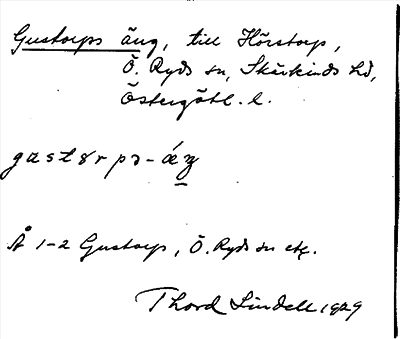 Gustorps äng, till Hörstorp,
Ö. Ryds sn, Skärkinds hd,
Östergötl. l.
Å 1-2 Gustorp, Ö. Ryds sn etc.
Thord Lindell 1929